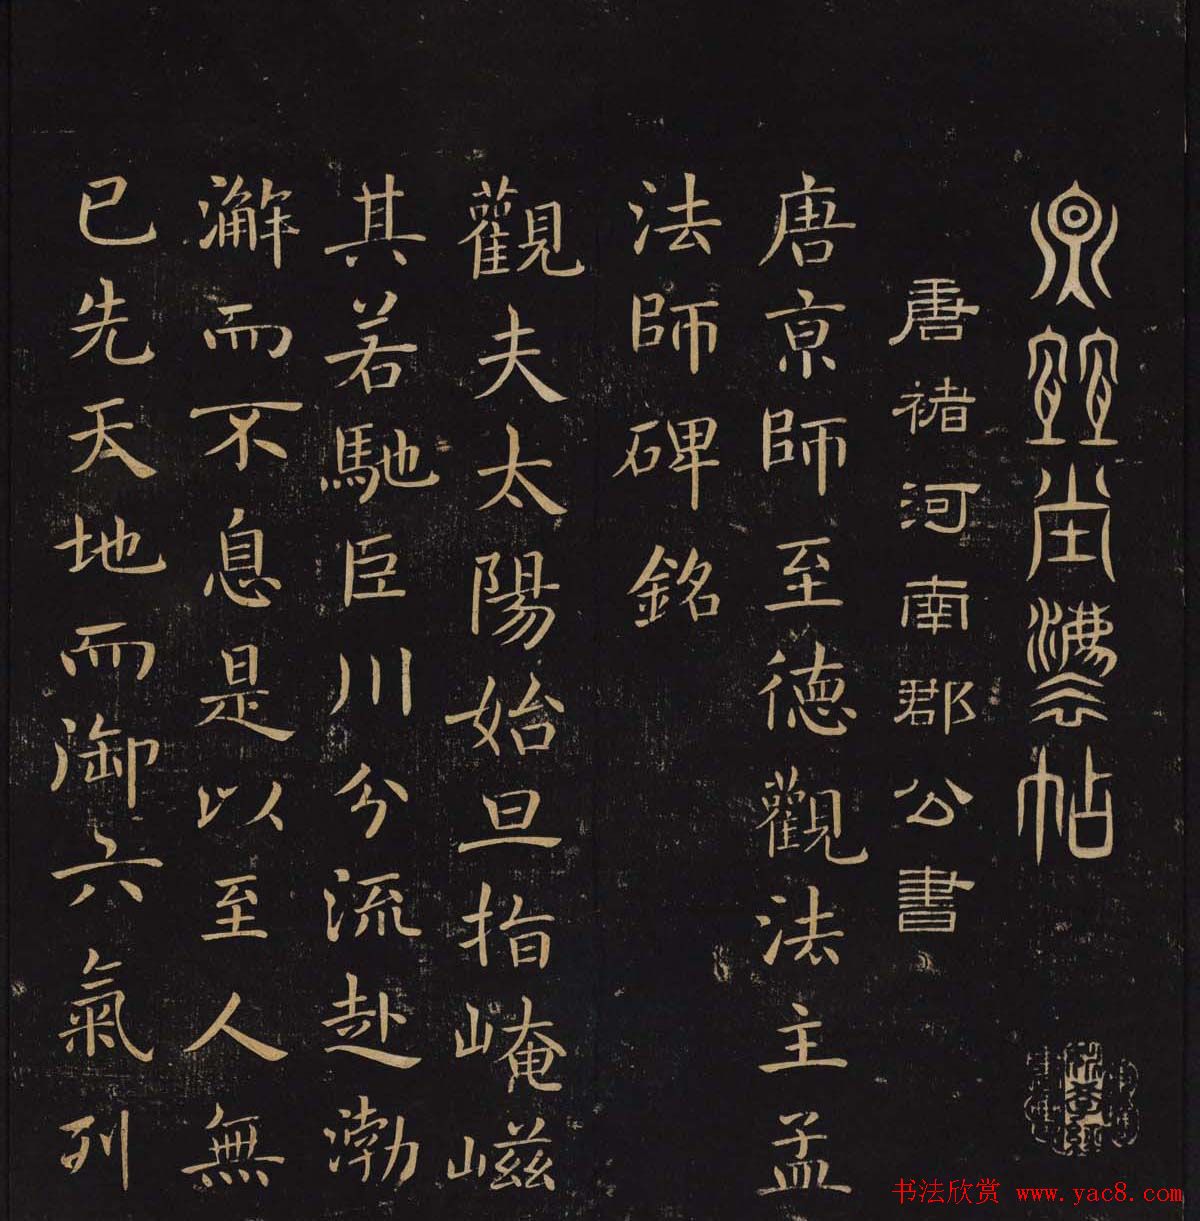 堂法帖
唐褚河南郡公書
唐亰師至德觀法主孟
法師碑銘
觀夫太陽始旦指崦嵫
其若馳巨川分流赴渤
澥而不息是以至人無
已先天地而御六氣列
书法欣赏 www.yac8.com